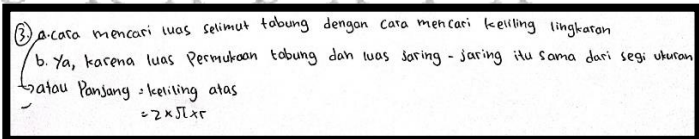 3. a. cara mencari luas selimut tabung dengan cara mencari keliling lingkaran
b. Ya, karena luas Permukaan tabung dan luas Jaring - jaring itu sama dari segi ukuran
atau Panjang = keliling atas
= 2 x π x r